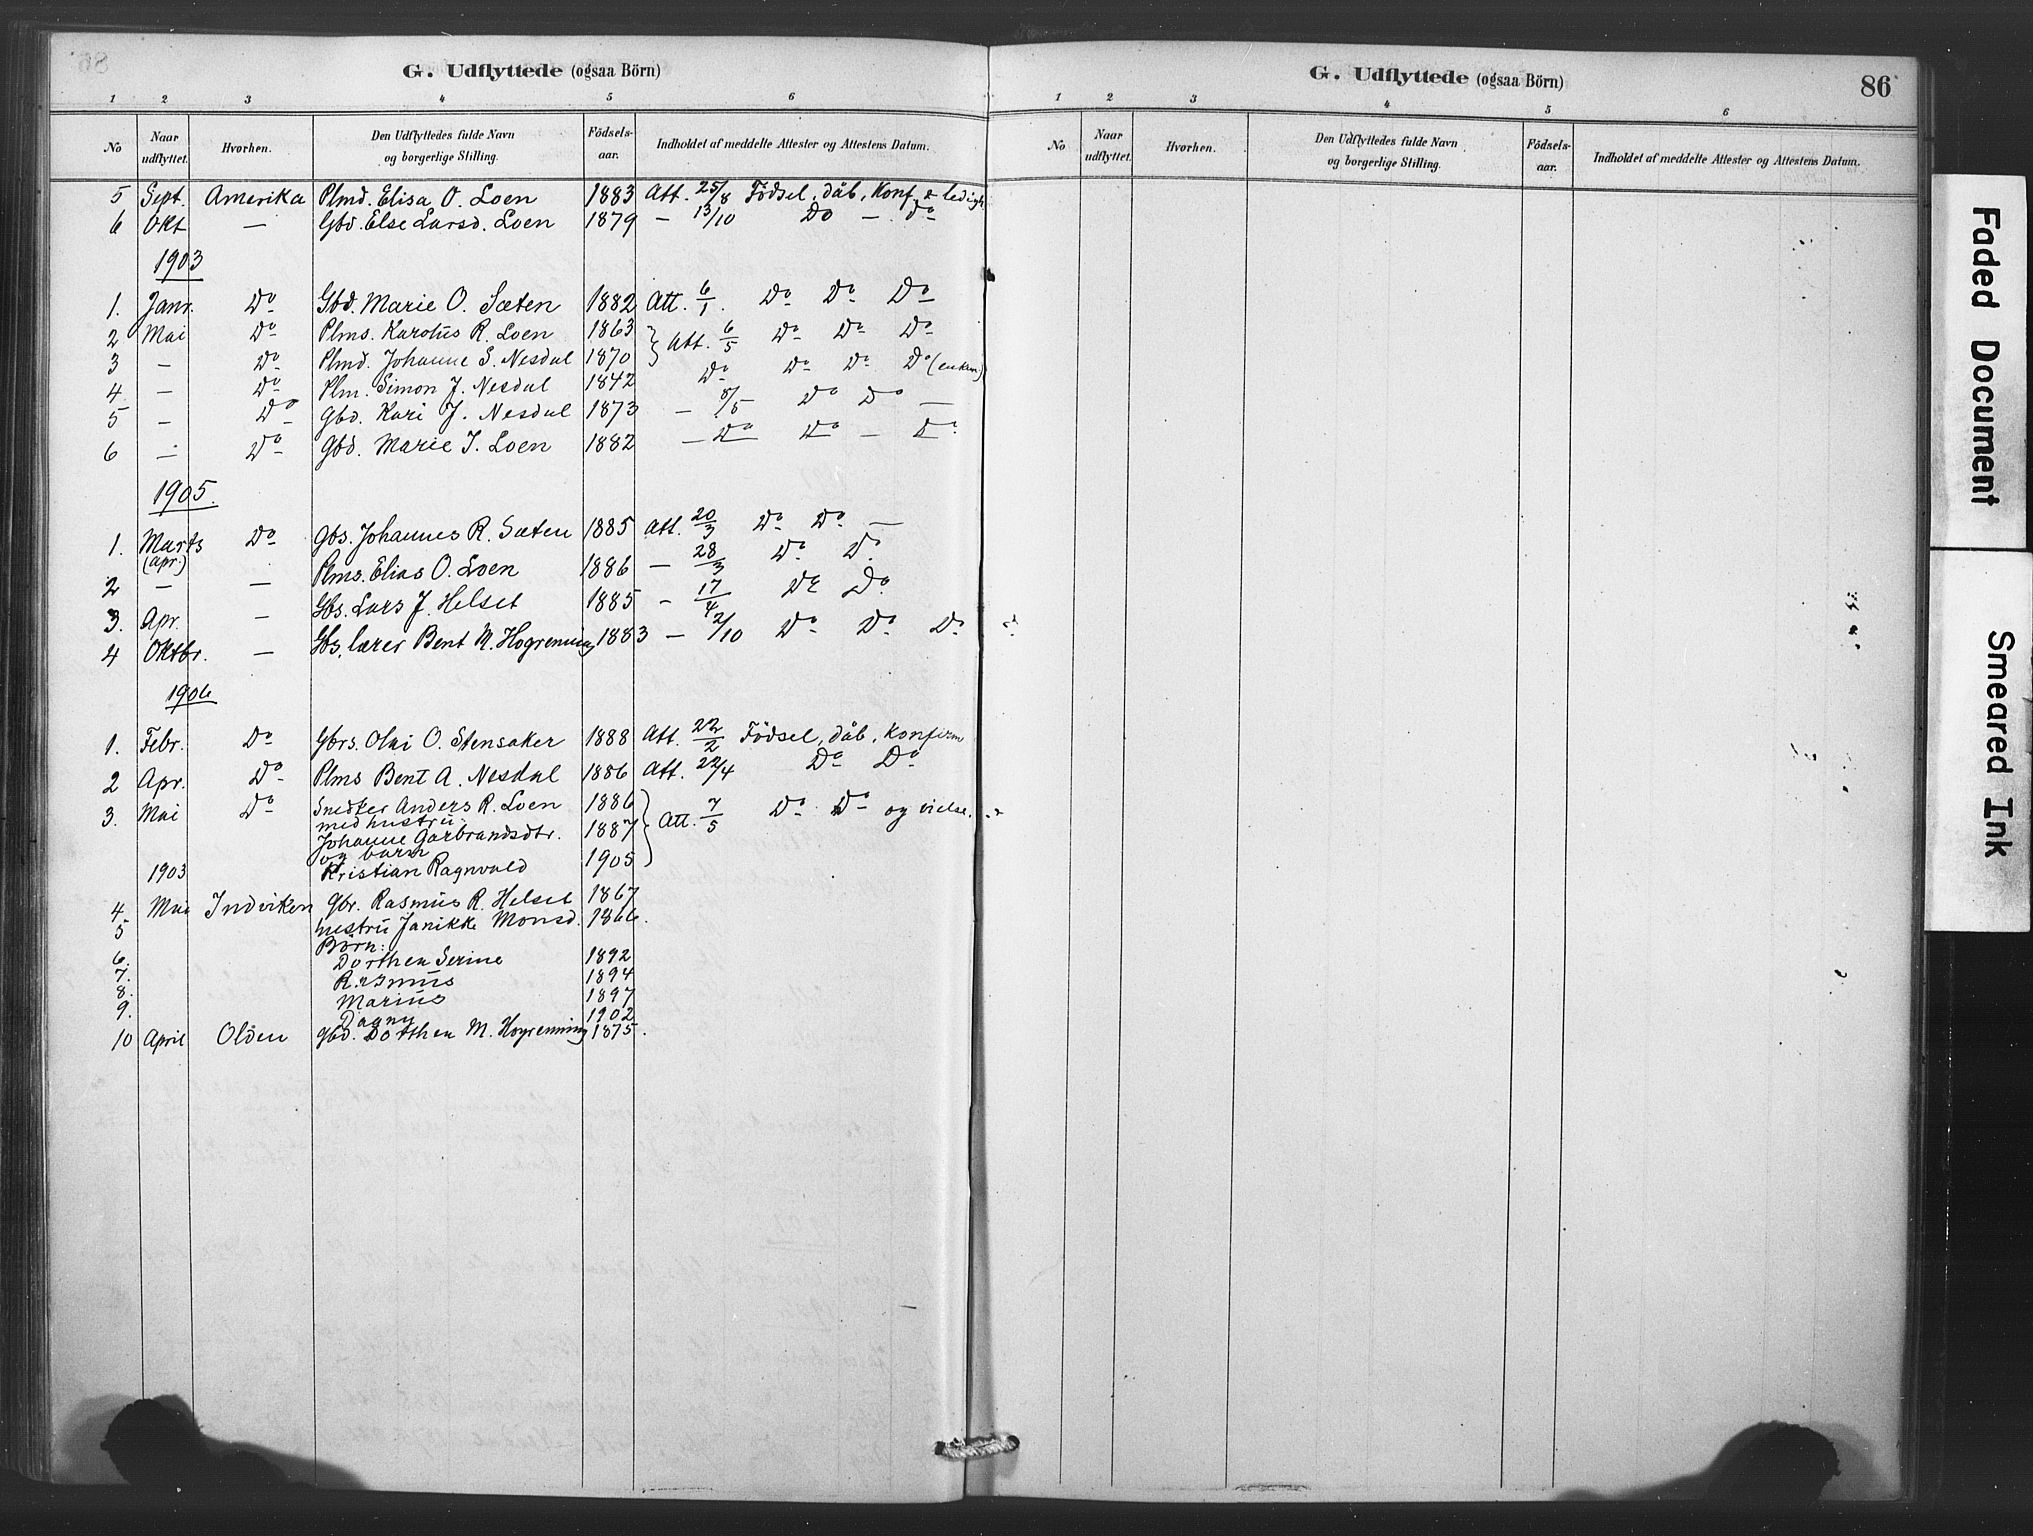 G. Udflyttede (ogsaa Börn)
1 2 3 4 5 6
No Naar udflyttet. Hvorhen. Den Udflyttedes fulde Navn og borgerlige Stilling. Födsels-aar. Indholdet af meddelte Attester og Attestens Datum.
5 Sept. Amerika Plmd. Elisa O. Loen 1883 Att. 25/8 Födsel, dåb, Konf. & ledigh
6 Okt — Gbd. Else Larsd. Loen 1879 — 13/10 Do — Do
1903
1. Janr. Do Gbd. Marie O. Sæten 1882 Att. 6/1. Do Do Do
2 Mai Do Plms. Karolus R. Loen 1863 } Att. 6/5 Do Do Do
3 — Do Plmd. Johanne S. Nesdal 1870
4 — Do Plm. Simon J. Nesdal 1842 Do Do Do Do (enkem)
5 — Do Gbd. Kari J. Nesdal 1873 — 8/5 Do Do —
6 — Do Gbd. Marie J. Loen 1882 — Do Do — Do
1905.
1. Marts (apr.) Do Gbs. Johannes R. Sæten 1885 Att. 20/3 Do Do —
2 — — Plms. Elias O. Loen 1886 — 28/3 Do Do
3. Apr. — Gbs. Lars J. Helset 1885 — 17/4 Do Do
4 Oktbr. — Gbs. lærer Bent M. Hogrenning 1883 — 2/10 Do Do Do
1906
1. Febr. Do Gbrs. Olai O. Stensaker 1888 Att. 22/2 Födsel, dåb, Konfirm
2 Apr. Do Plms Bent A. Nesdal 1886 Att. 22/4 Do Do
3. Mai Do Snedker Anders R. Loen 1886 } Att. 7/5 Do Do og vielse.
med hustru
Johanne Garbrandsdtr. 1887
og barn
Kristian Ragnvald 1905
1903
4. Mai Indviken Gbr. Rasmus R. Helset 1867
5 hustru Janikke Monsd. 1866.
Börn:
6. Dorthea Serine 1892
7. Rasmus 1894
8. Marius 1897
9. Dagny 1902
10 April Olden gbd. Dorthea M. Hogrenning 1875.
G. Udflyttede (ogsaa Börn) 86
1 2 3 4 5 6
No Naar udflyttet. Hvorhen. Den Udflyttedes fulde Navn og borgerlige Stilling. Födsels-aar. Indholdet af meddelte Attester og Attestens Datum.
Faded Document
Smeared Ink